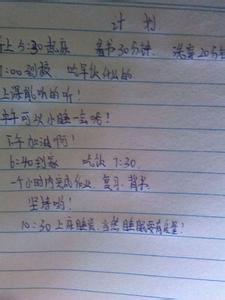 计划
早上5:30起床 看书30分钟 洗穿20分钟
7:00到校 吃早饭
上课能听的听！
中午可以小睡一会嘛！
下午加油啊！
6:40到家 吃饭 7:30
一个小时内完成作业、复习、背书
坚持哟！
10:30上床睡觉，当然睡眠要有定量！